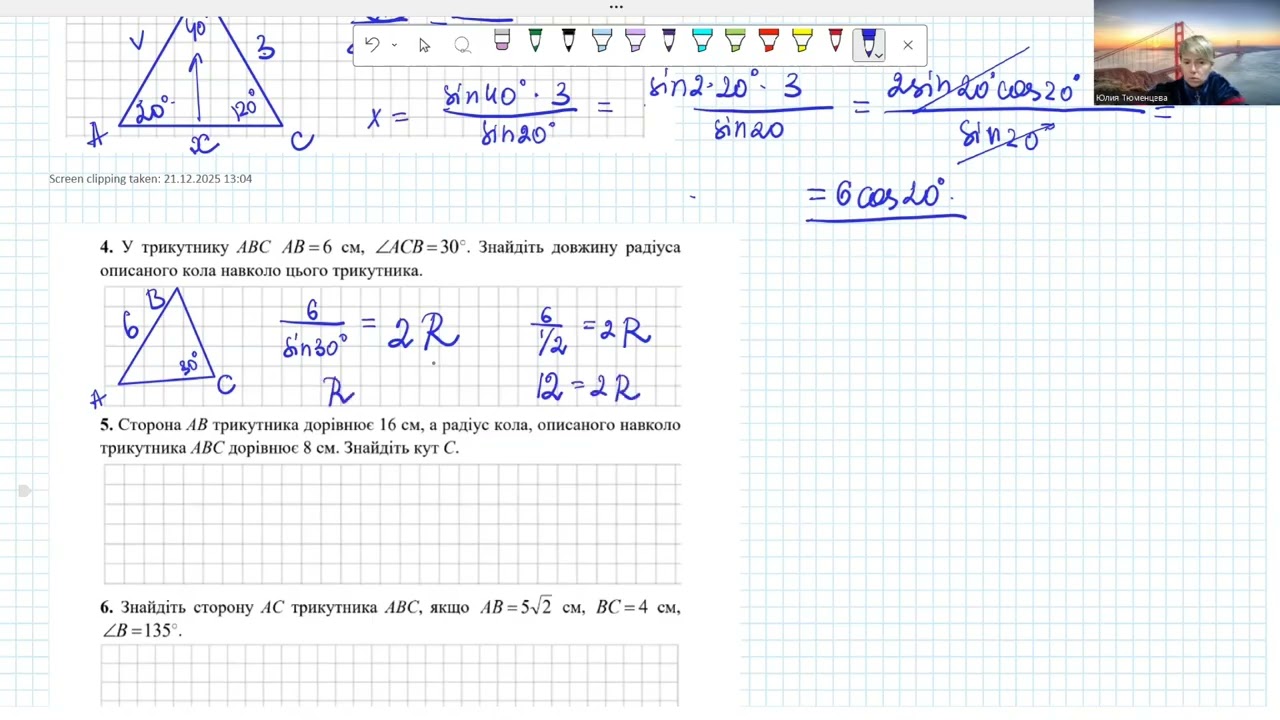 40°
V
3
20°
120°
A
x
C
x = sin40° · 3 / sin20° = sin2·20° · 3 / sin20 = 2sin20°cos20° / sin20° =
= 6cos20°.
Юлия Тюменцева
Screen clipping taken: 21.12.2025 13:04
4. У трикутнику ABC AB = 6 см, ∠ACB = 30°. Знайдіть довжину радіуса
описаного кола навколо цього трикутника.
B
6
30°
A
C
6 / sin30° = 2R
R
6 / 1/2 = 2R
12 = 2R
5. Сторона AB трикутника дорівнює 16 см, а радіус кола, описаного навколо
трикутника ABC дорівнює 8 см. Знайдіть кут C.
6. Знайдіть сторону AC трикутника ABC, якщо AB = 5√2 см, BC = 4 см,
∠B = 135°.